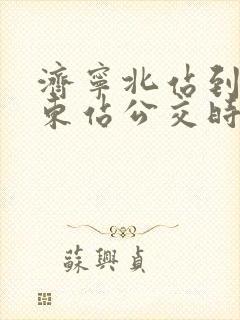 濟寧北站到
東站公交時
蘇興貞